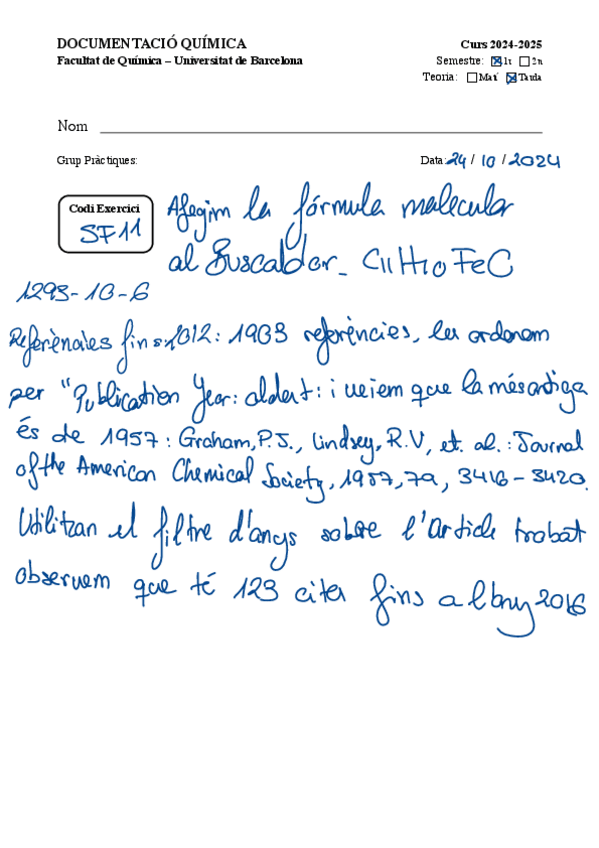 DOCUMENTACIÓ QUÍMICA
Curs 2024-2025
Facultat de Química – Universitat de Barcelona
Semestre: 1r 2n
Teoria: Matí Tarda
Nom
Grup Pràctiques:
Data: 24 / 10 / 2024
Codi Exercici
SF11
Afegim la fórmula molecular
al Buscador_ C11H10FeC
1293-10-6
Referències fins 2012: 1903 referències, les ordenem
per "Publication Year: oldest: i veiem que la més antiga
és de 1957: Graham, P.J., Lindsey, R.V, et. al.: Journal
of the American Chemical Society, 1957, 79, 3416-3420.
Utilitzan el filtre d'anys sobre l'article trobat
observem que té 123 cites fins a l'any 2016